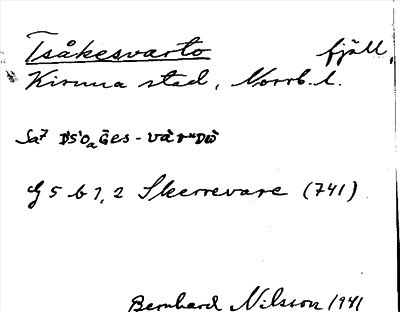 Tsåkesvarto fjäll,
Kiruna stad, Norrb. l.
G 5 b 1, 2 Skerrevare (741)
Bernhard Nilsson 1941